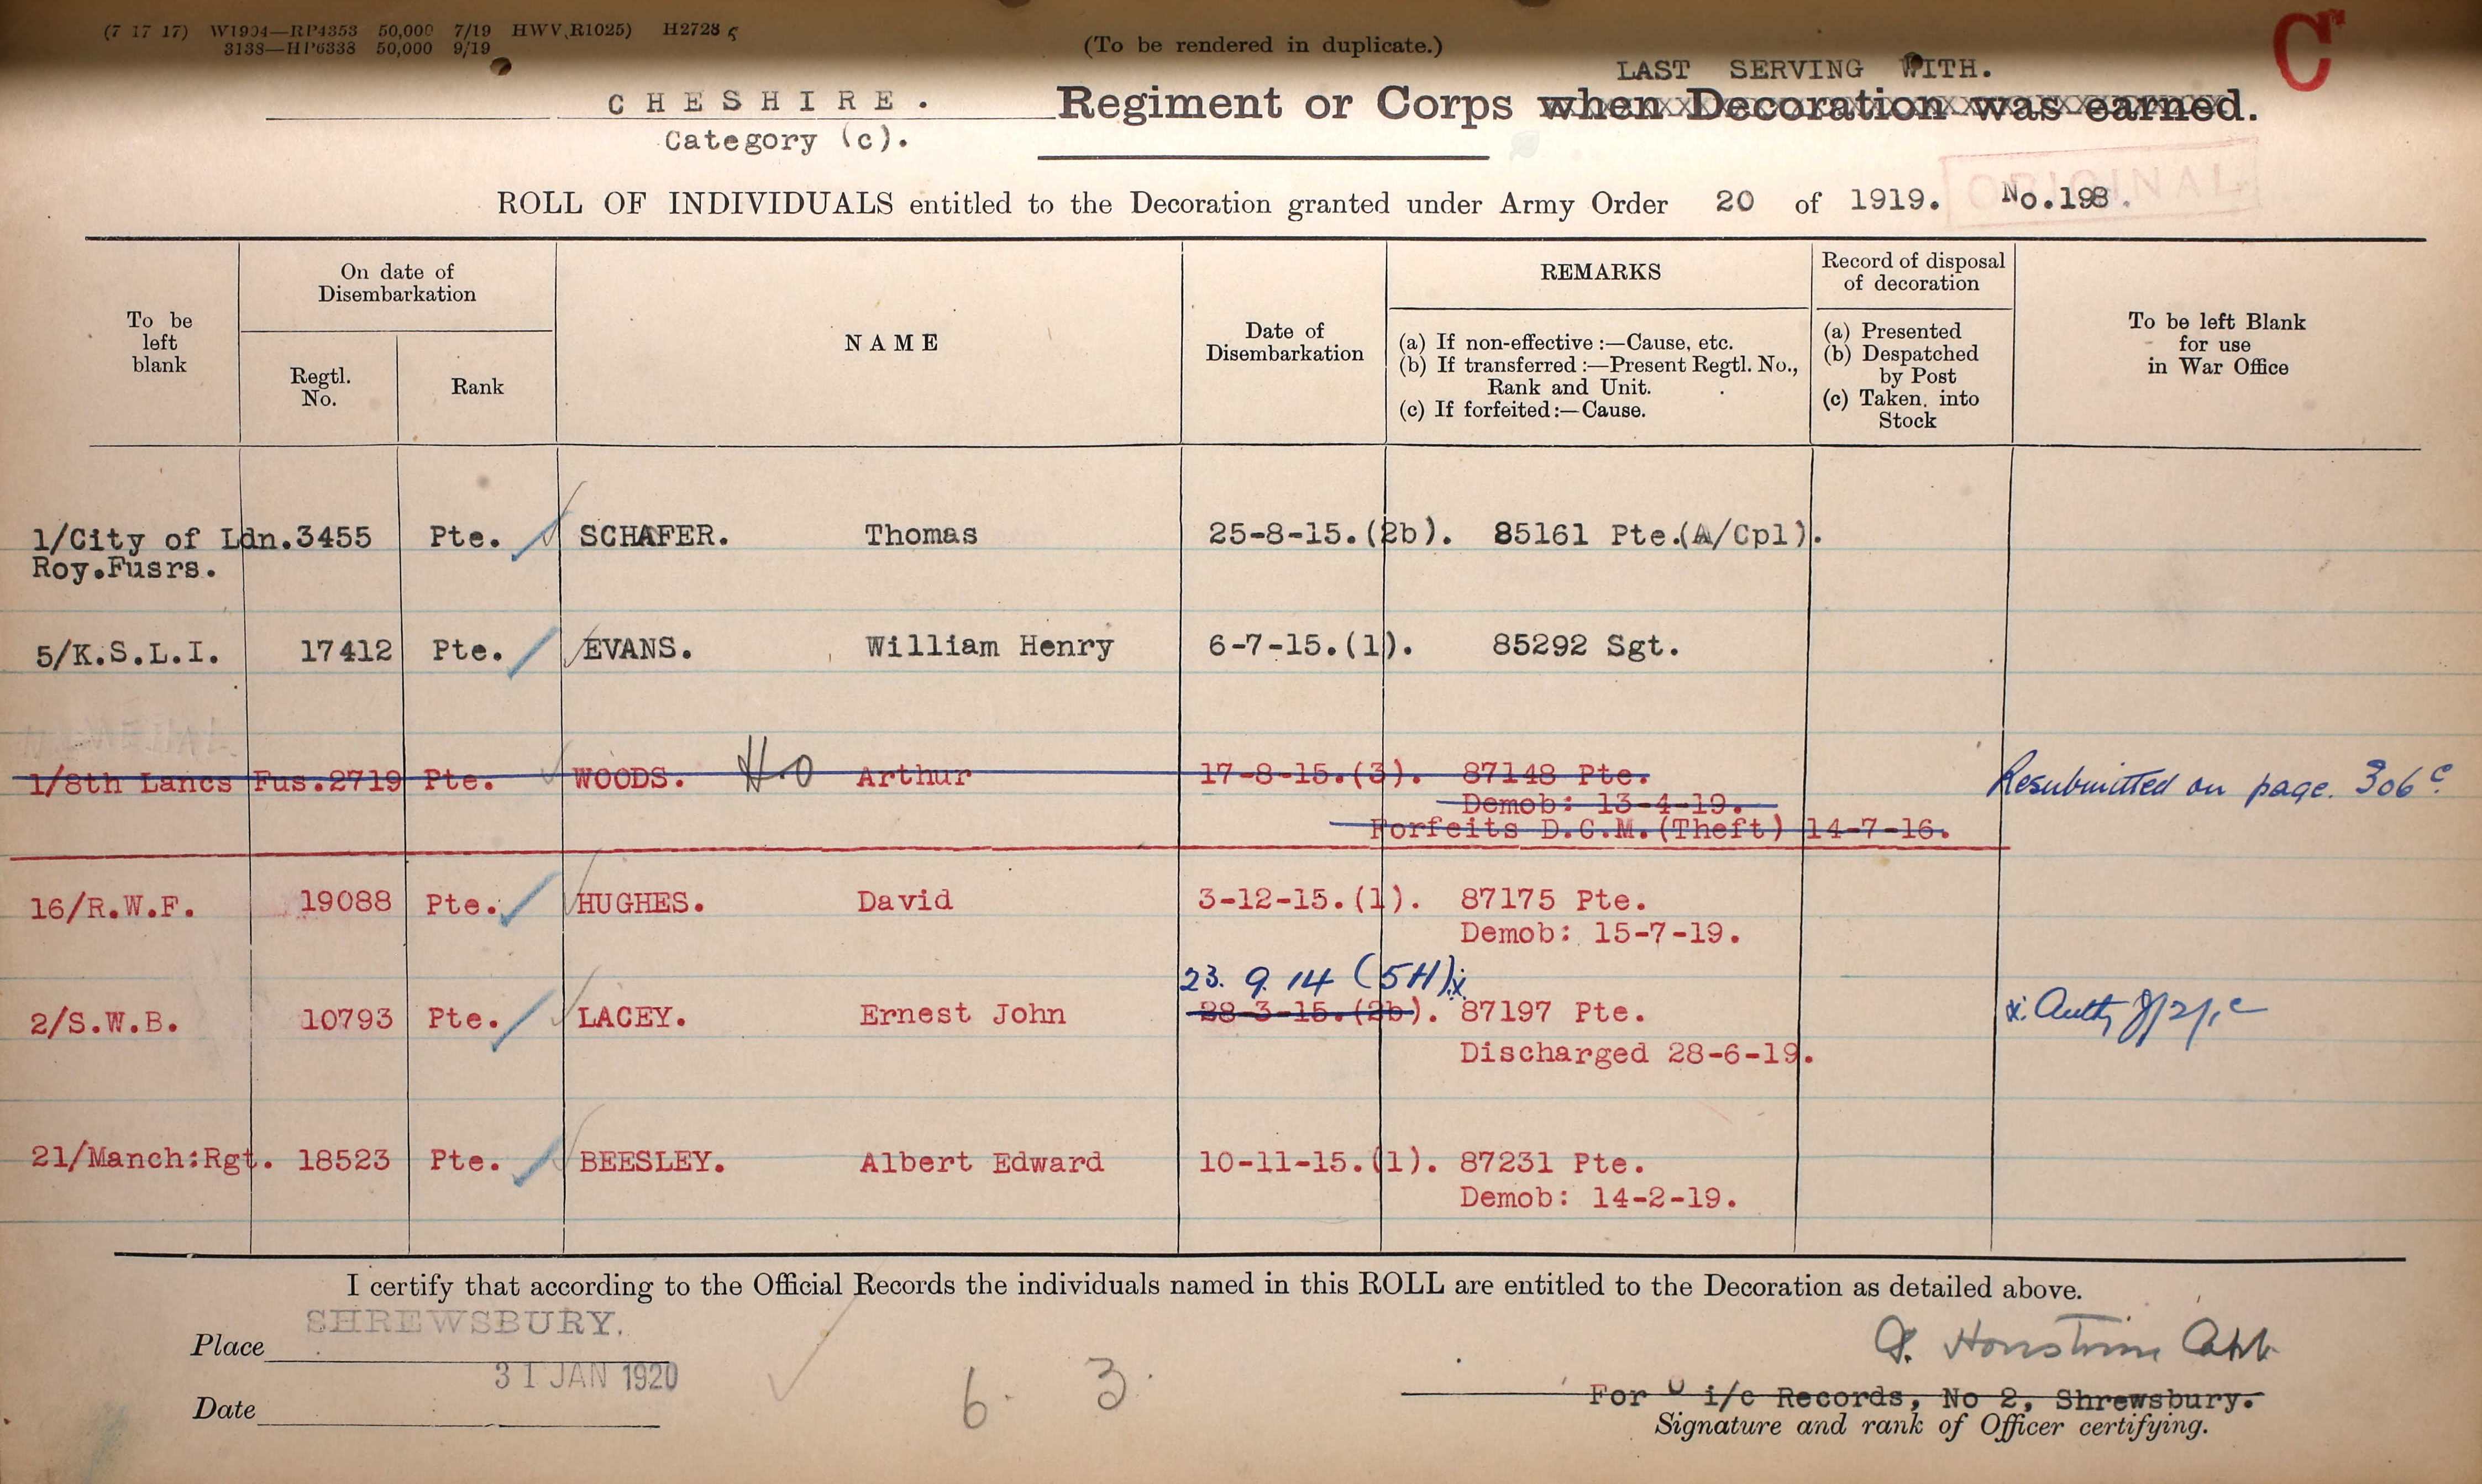 (7 17 17) W1904—RP4353 50,000 7/19 HWV(R1025) H2728
3138—HP6338 50,000 9/19
(To be rendered in duplicate.)
C
LAST SERVING WITH.
CHESHIRE. Regiment or Corps when Decoration was earned.
Category (c).
ROLL OF INDIVIDUALS entitled to the Decoration granted under Army Order 20 of 1919. No.198.
ORIGINAL
To be left blank
On date of Disembarkation
Regtl. No.
Rank
NAME
Date of Disembarkation
REMARKS
(a) If non-effective :—Cause, etc.
(b) If transferred :—Present Regtl. No., Rank and Unit.
(c) If forfeited :—Cause.
Record of disposal of decoration
(a) Presented
(b) Despatched by Post
(c) Taken into Stock
To be left Blank for use in War Office
1/City of Ldn. 3455 Pte. SCHAFER. Thomas 25-8-15.(2b). 85161 Pte.(A/Cpl).
Roy.Fusrs.
5/K.S.L.I. 17412 Pte. EVANS. William Henry 6-7-15.(1). 85292 Sgt.
1/8th Lancs Fus. 2719 Pte. WOODS. Arthur 17-8-15.(3). 87148 Pte. Resubmitted on page. 306 c.
Demob: 13-4-19.
Forfeits D.C.M.(Theft) 14-7-16.
16/R.W.F. 19088 Pte. HUGHES. David 3-12-15.(1). 87175 Pte.
Demob: 15-7-19.
23. 9. 14 (5H)
2/S.W.B. 10793 Pte. LACEY. Ernest John 28-3-15.(2b). 87197 Pte. x. Auth
Discharged 28-6-19.
21/Manch:Rgt. 18523 Pte. BEESLEY. Albert Edward 10-11-15.(1). 87231 Pte.
Demob: 14-2-19.
I certify that according to the Official Records the individuals named in this ROLL are entitled to the Decoration as detailed above.
Place SHREWSBURY.
Date 31 JAN 1920
6. 3.
For i/c Records, No 2, Shrewsbury.
Signature and rank of Officer certifying.